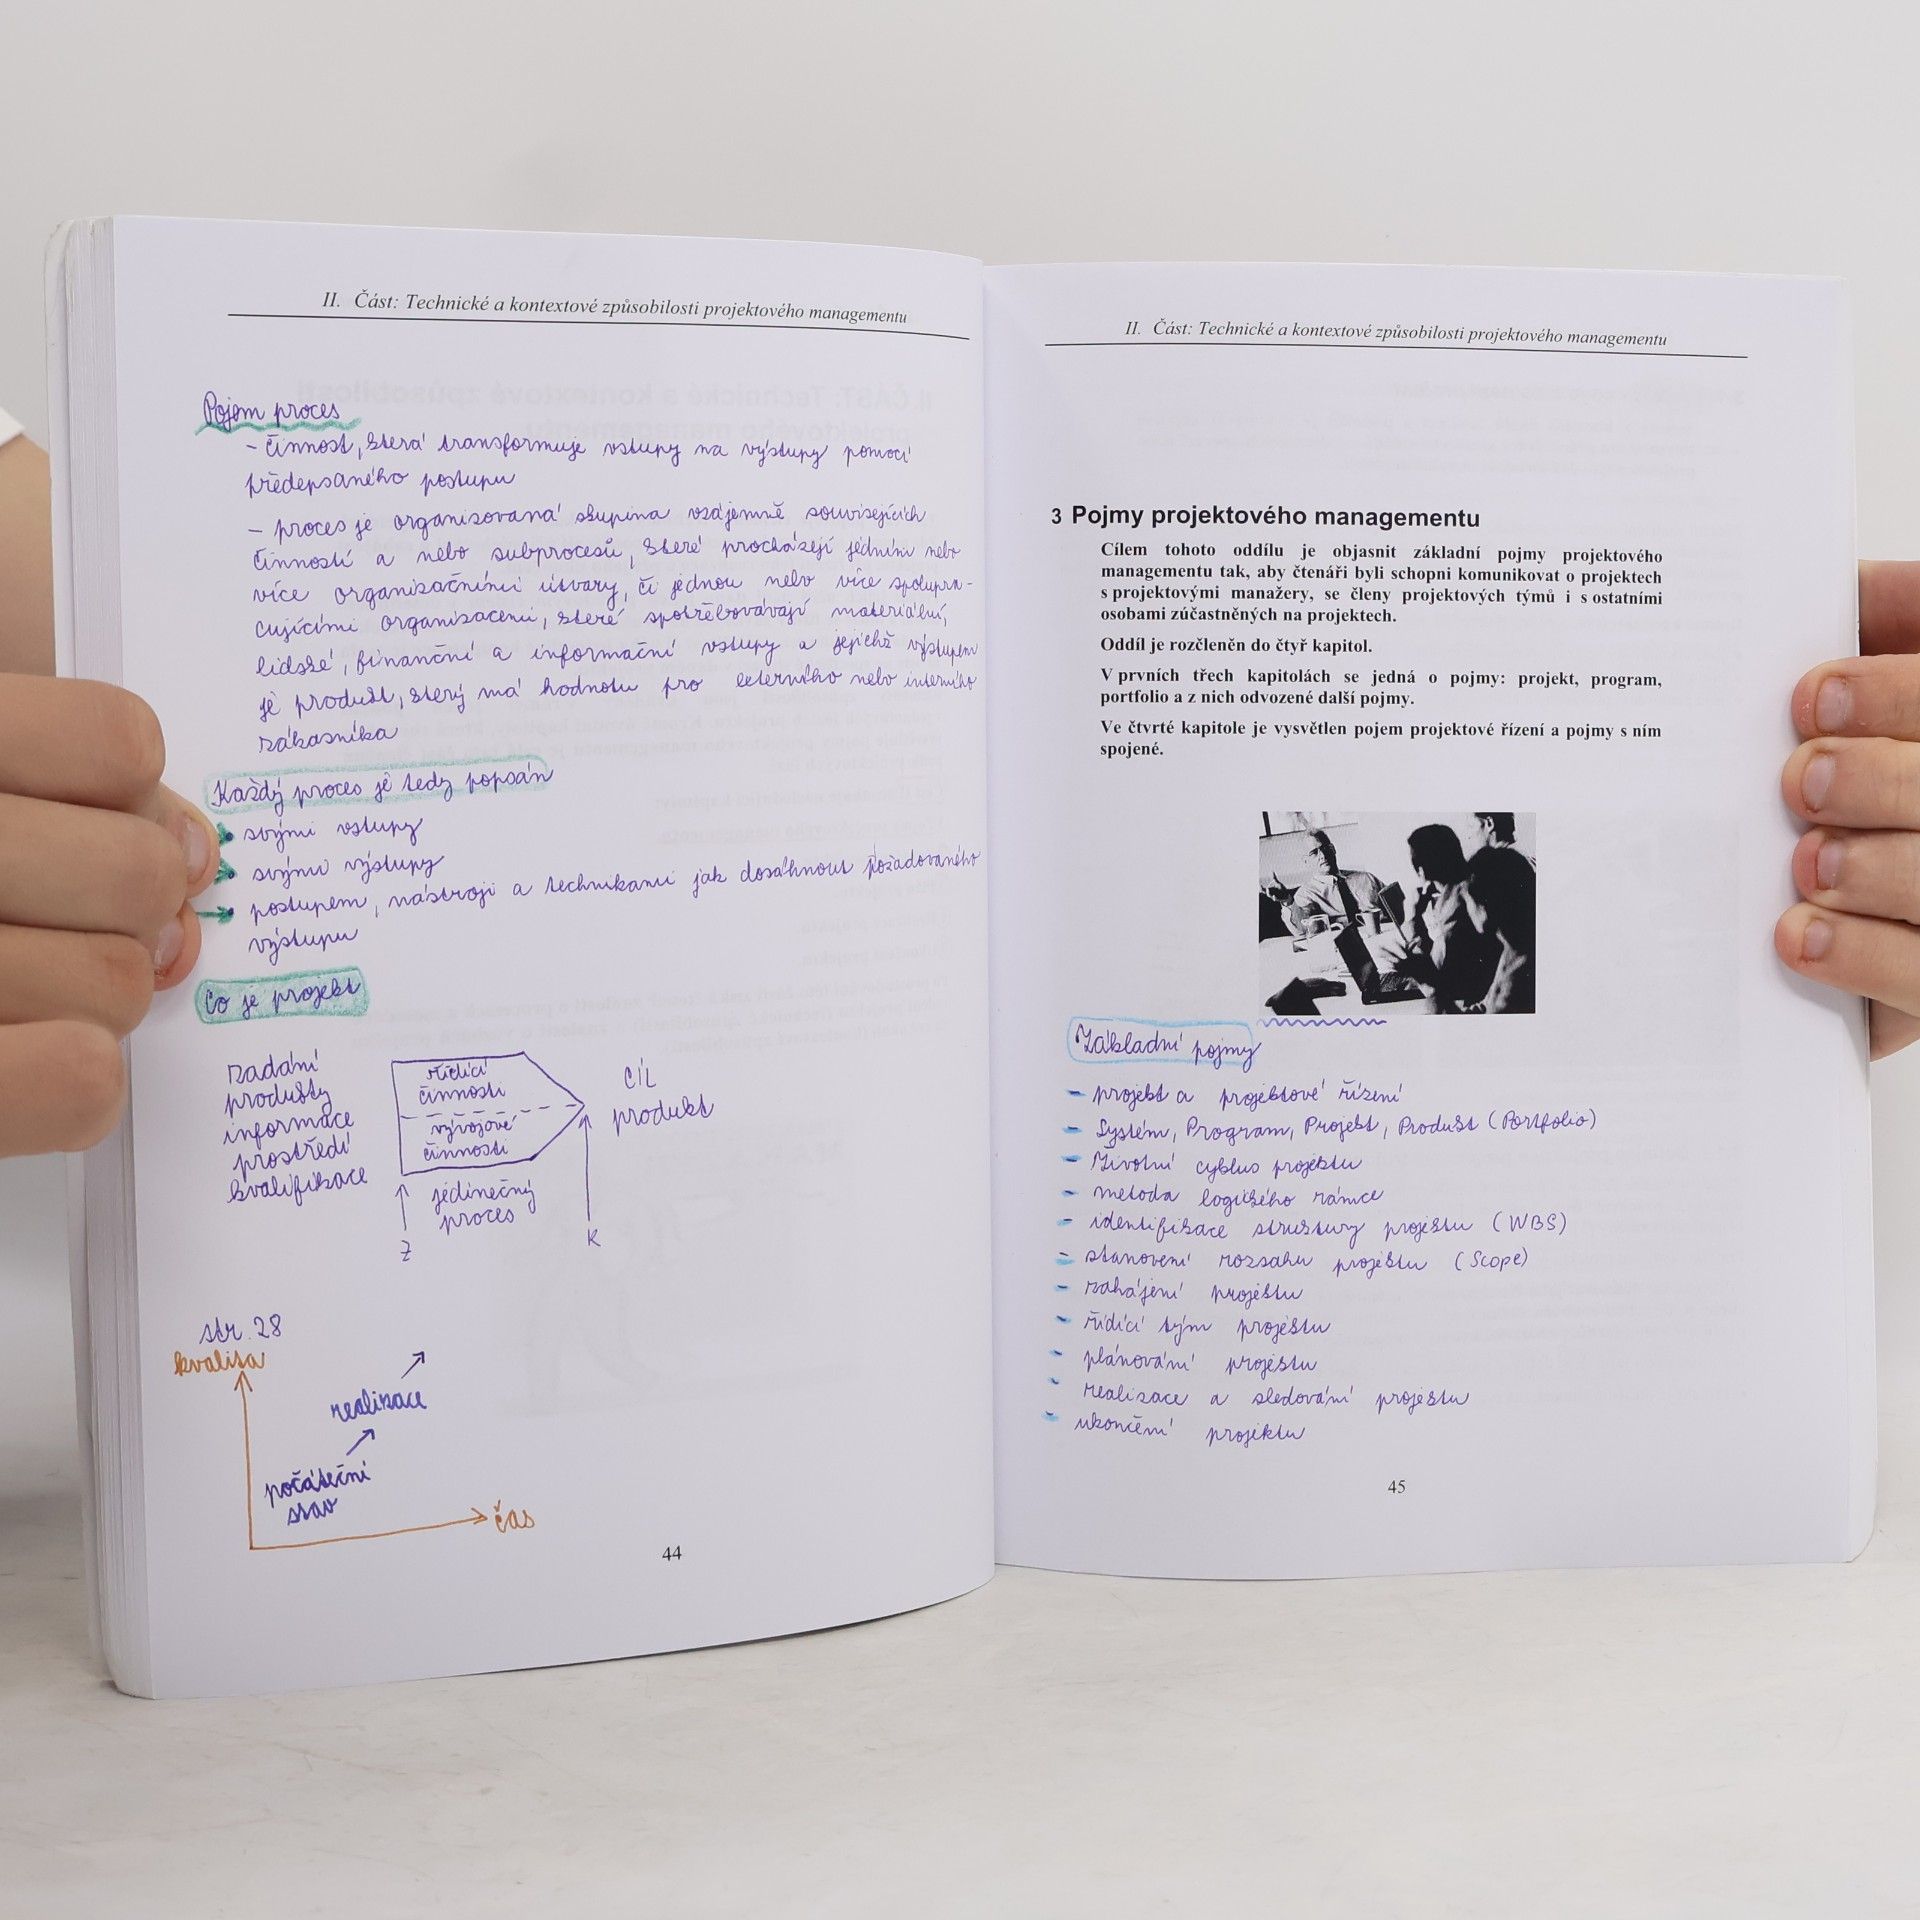 II. Část: Technické a kontextové způsobilosti projektového managementu
Pojem proces
- činnost, která transformuje vstupy na výstupy pomocí
předepsaného postupu
- proces je organizovaná skupina vzájemně souvisejících
činností a nebo subprocesů, které procházejí jedním nebo
více organizačními útvary, či jednou nebo více spolupra-
cujícími organizacemi, které spotřebovávají materiální,
lidské, finanční a informační vstupy a jejichž výstupem
je produkt, který má hodnotu pro externího nebo interního
zákazníka
Každý proces je tedy popsán
svými vstupy
svými výstupy
postupem, nástroji a technikami jak dosáhnout požadovaného
výstupu
Co je projekt
zadání
produkty
informace
prostředí
kvalifikace
řídící
činnosti
vývojové
činnosti
jedinečný
proces
Z
K
CÍL
produkt
str. 28
kvalita
realizace
počáteční
stav
čas
44
II. Část: Technické a kontextové způsobilosti projektového managementu
3 Pojmy projektového managementu
Cílem tohoto oddílu je objasnit základní pojmy projektového
managementu tak, aby čtenáři byli schopni komunikovat o projektech
s projektovými manažery, se členy projektových týmů i s ostatními
osobami zúčastněných na projektech.
Oddíl je rozčleněn do čtyř kapitol.
V prvních třech kapitolách se jedná o pojmy: projekt, program,
portfolio a z nich odvozené další pojmy.
Ve čtvrté kapitole je vysvětlen pojem projektové řízení a pojmy s ním
spojené.
Základní pojmy
- projekt a projektové řízení
- Systém, Program, Projekt, Produkt (Portfolio)
- Životní cyklus projektu
- metoda logického rámce
- identifikace struktury projektu (WBS)
- stanovení rozsahu projektu (Scope)
- zahájení projektu
- řídící tým projektu
- plánování projektu
- realizace a sledování projektu
- ukončení projektu
45